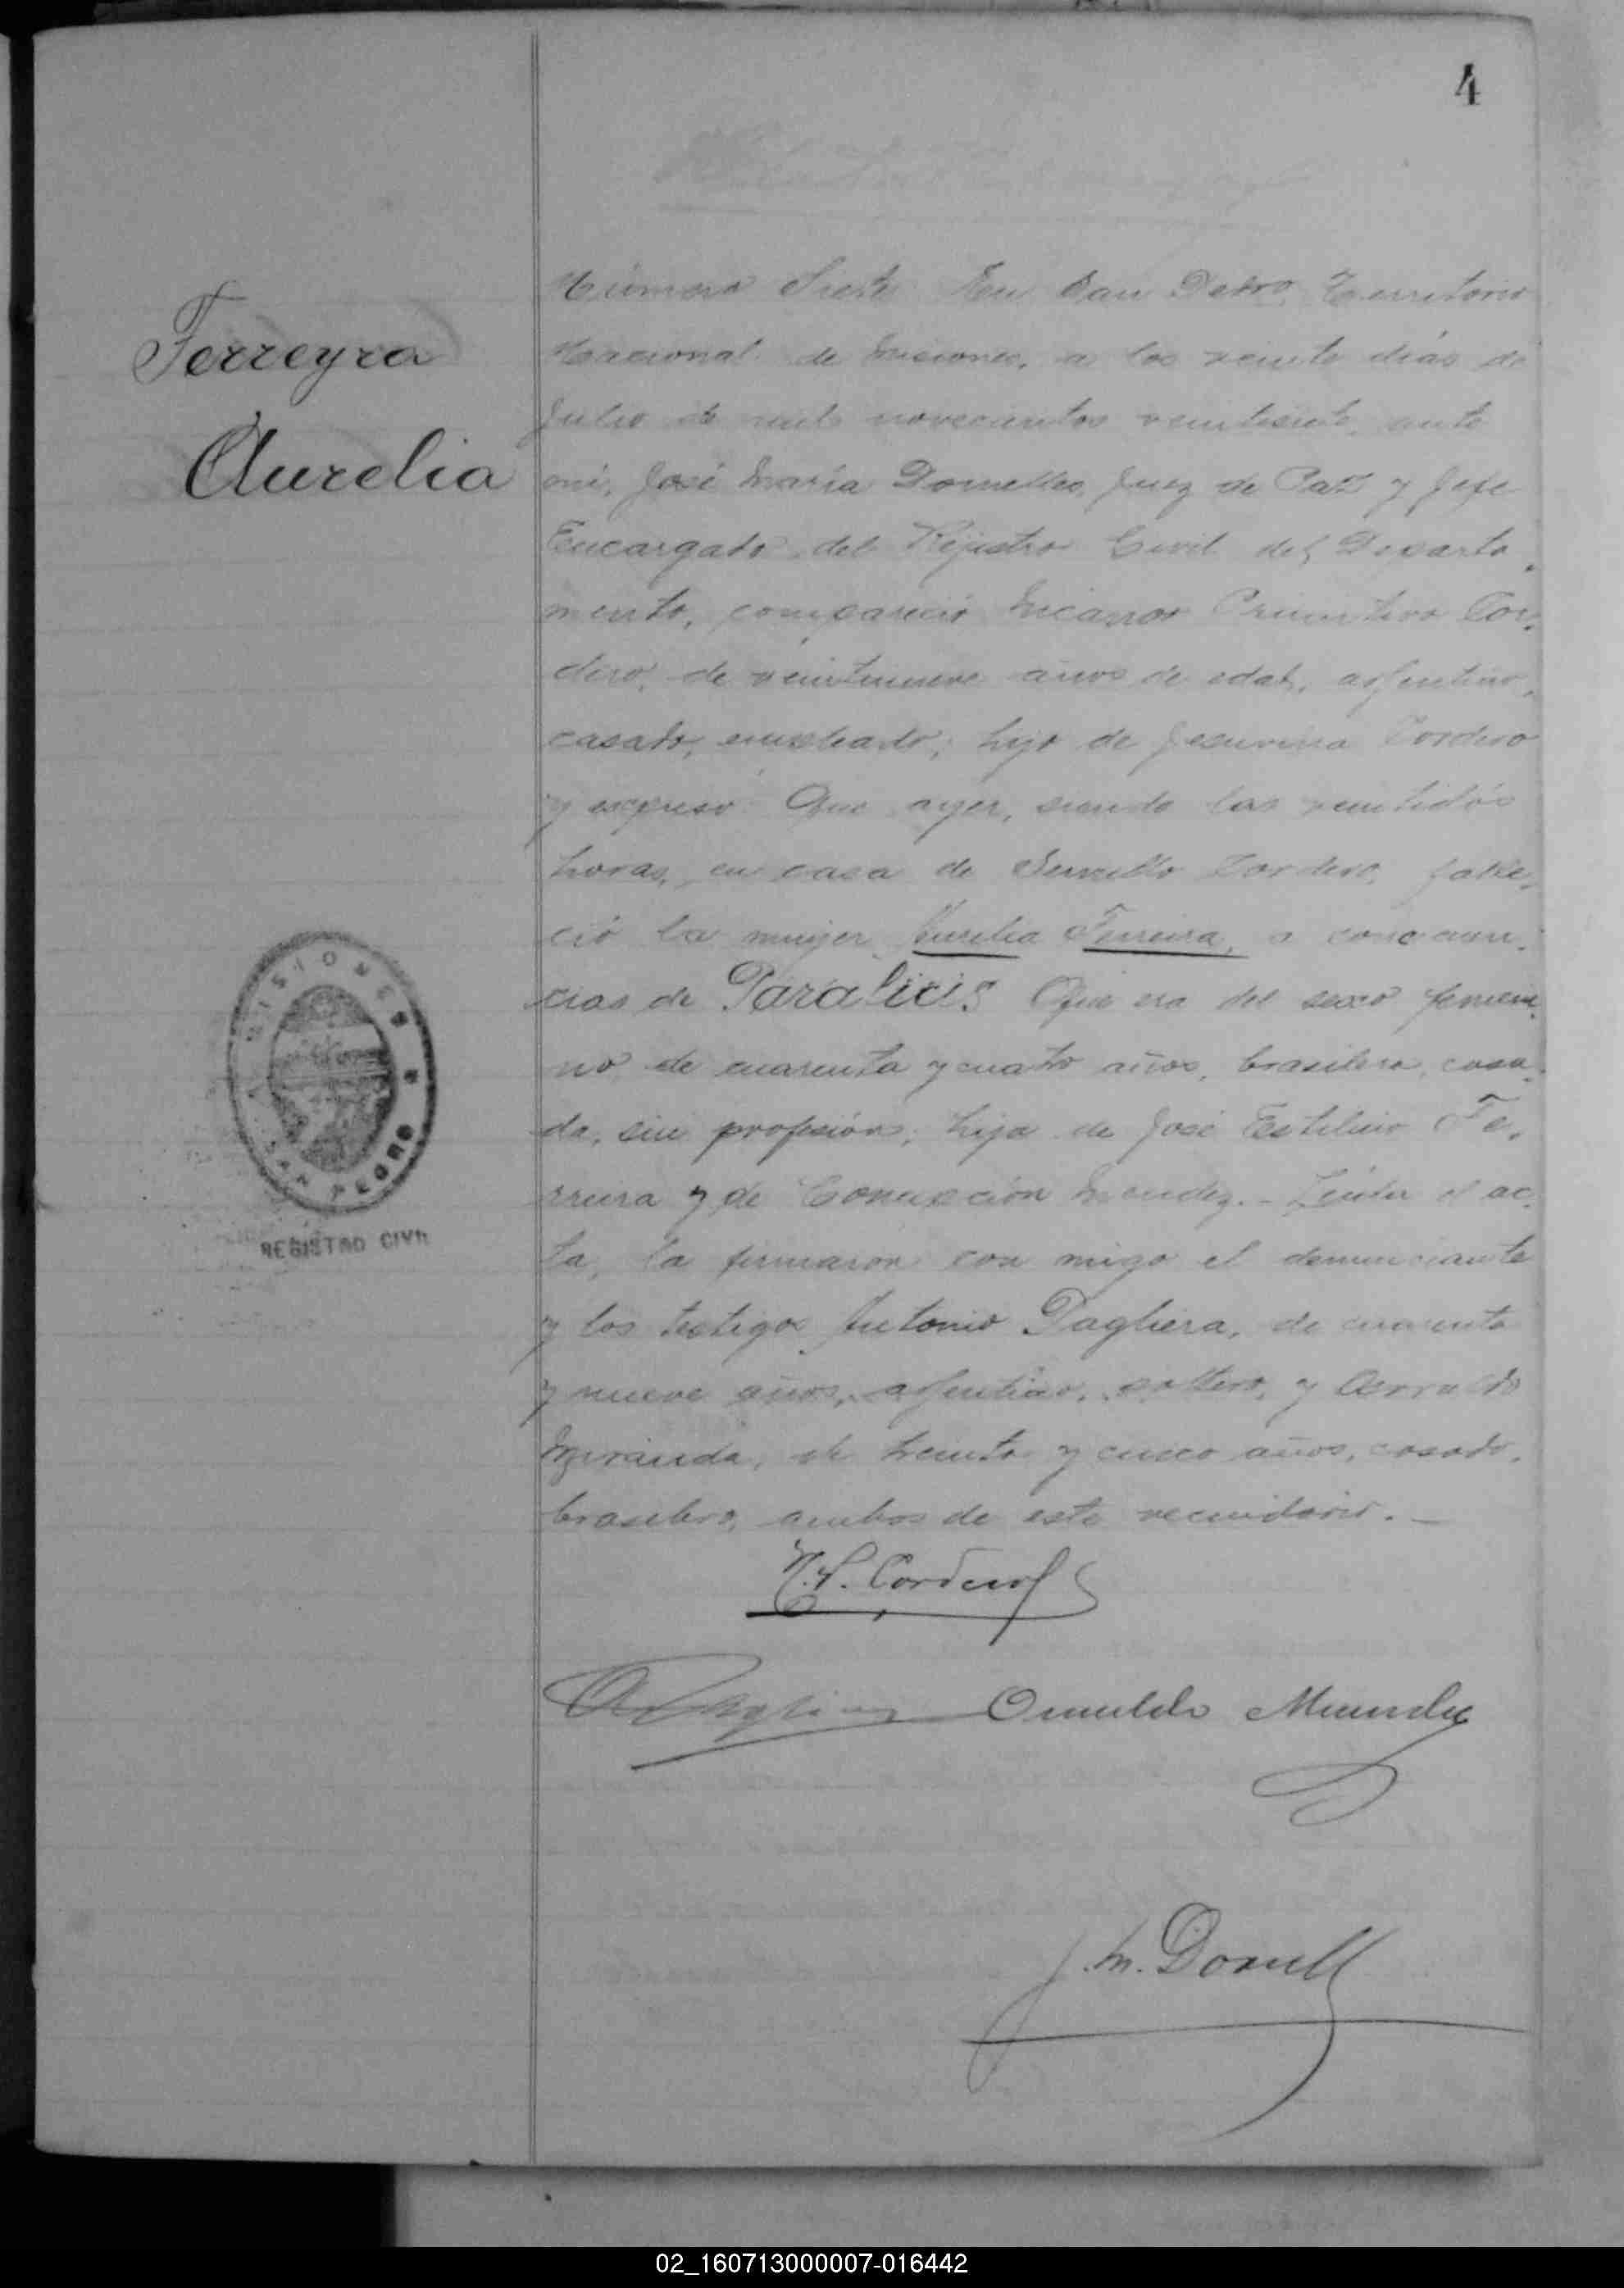 4
Ferreyra
Aurelia
Número Siete. En San Pedro, Territorio
Nacional de Misiones, a los veinte dias de
Julio de mil novecientos veintisiete, ante
mi, José María Dornelles, Juez de Paz y Jefe
Encargado del Rejistro Civil del Departa
mento, compareció Nicanor Primitivo Cor-
dero, de veintinueve años de edad, arjentino,
casado, empleado; hijo de Jesuvina Cordero
y expresó: Que ayer, siendo las veintidós
horas, en casa de Cordero, falle-
ció la mujer Aurelia Ferreira, a consecuen-
cias de Paralicis Que era del sexo femeni-
no de cuarenta y cuatro años, brasilera, casa-
da, sin profesión; hija de José Estilicio Fe-
rreira y de Concepción Mendez. - Leida el ac-
ta, la firmaron con migo el denunciante
y los testigos Antonio Pagliera, de cuarenta
y nueve años, arjentino, soltero, y
Miranda, de treinta y cinco años, casado,
brasilero, ambos de este vecindario. -
N. P. Cordero
Miranda
J. M. Dornell
MISIONES
SAN PEDRO
REGISTRO CIVIL
02_160713000007-016442